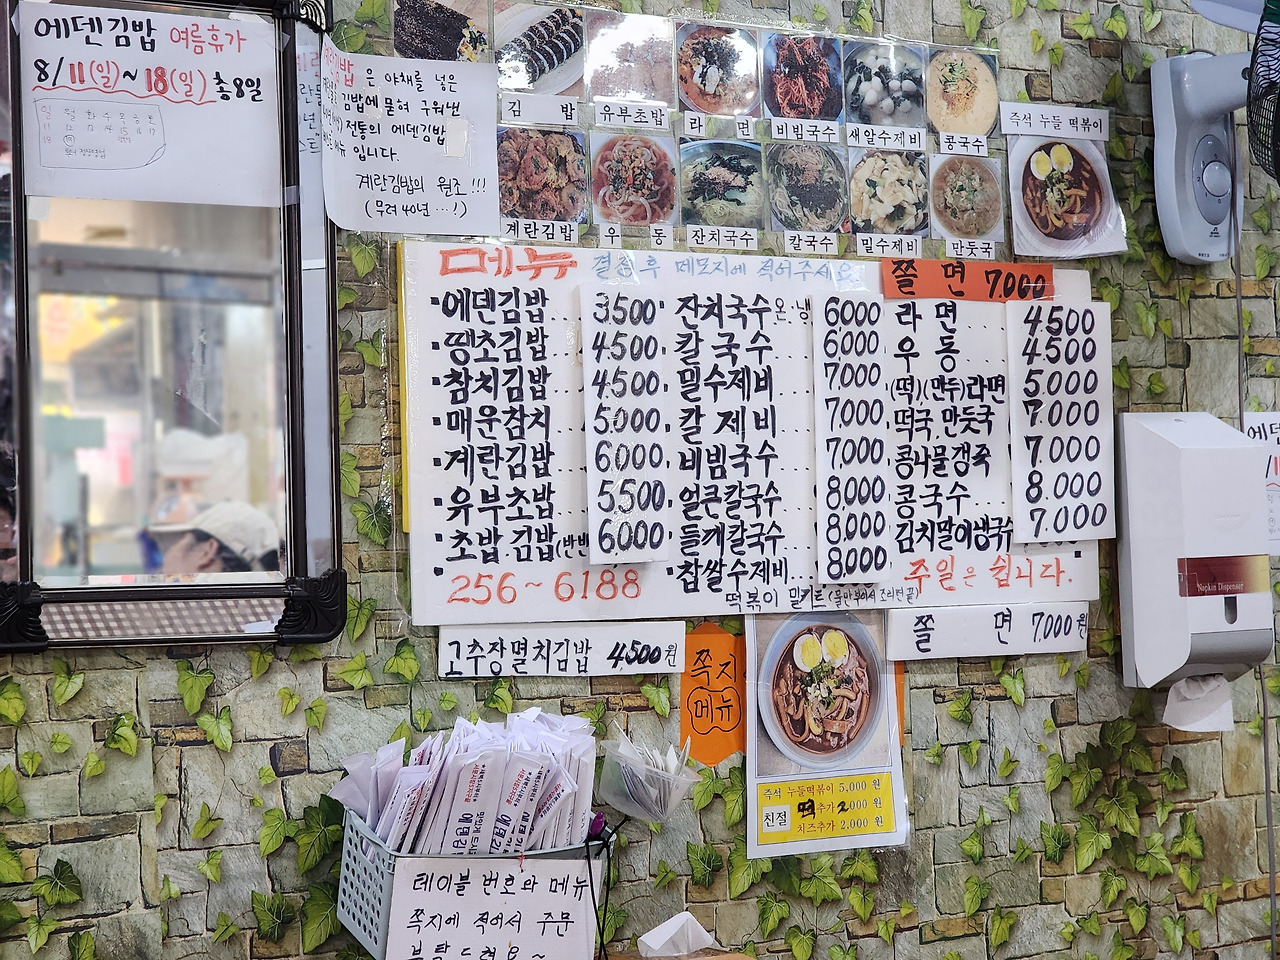 에덴김밥 여름휴가
8/11(일)~18(일) 총8일
일 월 화 수 목 금 토
11 12 13 14 15 16 17
18
은 야채를 넣은
김밥에 묻혀 구워낸
전통의 에덴김밥
입니다.
계란김밥의 원조!!!
(무려 40년...!)
김 밥
유부초밥
라 면
비빔국수
새알수제비
콩국수
즉석 누들 떡볶이
계란김밥
우 동
잔치국수
칼국수
밀수제비
만둣국
메뉴 결정 후 메모지에 적어주세요
쫄 면 7.000
에덴김밥 3.500
땡초김밥 4.500
참치김밥 4.500
매운참치 5.000
계란김밥 6.000
유부초밥 5.500
초밥.김밥(반반 6.000
256~6188
잔치국수온.냉 6.000
칼국수 6.000
밀수제비 7.000
칼제비 7.000
비빔국수 7.000
얼큰칼국수 8.000
들깨칼국수 8.000
찹쌀수제비 8.000
떡볶이 밀키트(물만부어서 조리면끝)
라면 4.500
우동 4.500
(떡),(만두)라면 5.000
떡국.만둣국 7.000
콩나물갱죽 7.000
콩국수 8.000
김치말이냉국수 7.000
주일은 쉽니다.
고추장멸치김밥 4500원
쪽지
메뉴
쫄 면 7,000원
즉석 누들떡볶이 5,000 원
친절 떡추가 2,000 원
치즈추가 2,000 원
Napkin Dispenser
테이블 번호와 메뉴
쪽지에 적어서 주문
부탁드려요~